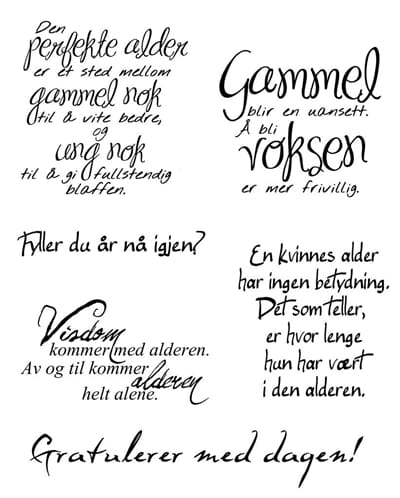 Den
perfekte alder
er et sted mellom
gammel nok
til å vite bedre,
og
ung nok
til å gi fullstendig
blaffen.
Gammel
blir en uansett.
Å bli
voksen
er mer frivillig.
Fyller du år nå igjen?
En kvinnes alder
har ingen betydning.
Det som teller,
er hvor lenge
hun har vært
i den alderen.
Visdom
kommer med alderen.
Av og til kommer
alderen
helt alene.
Gratulerer med dagen!